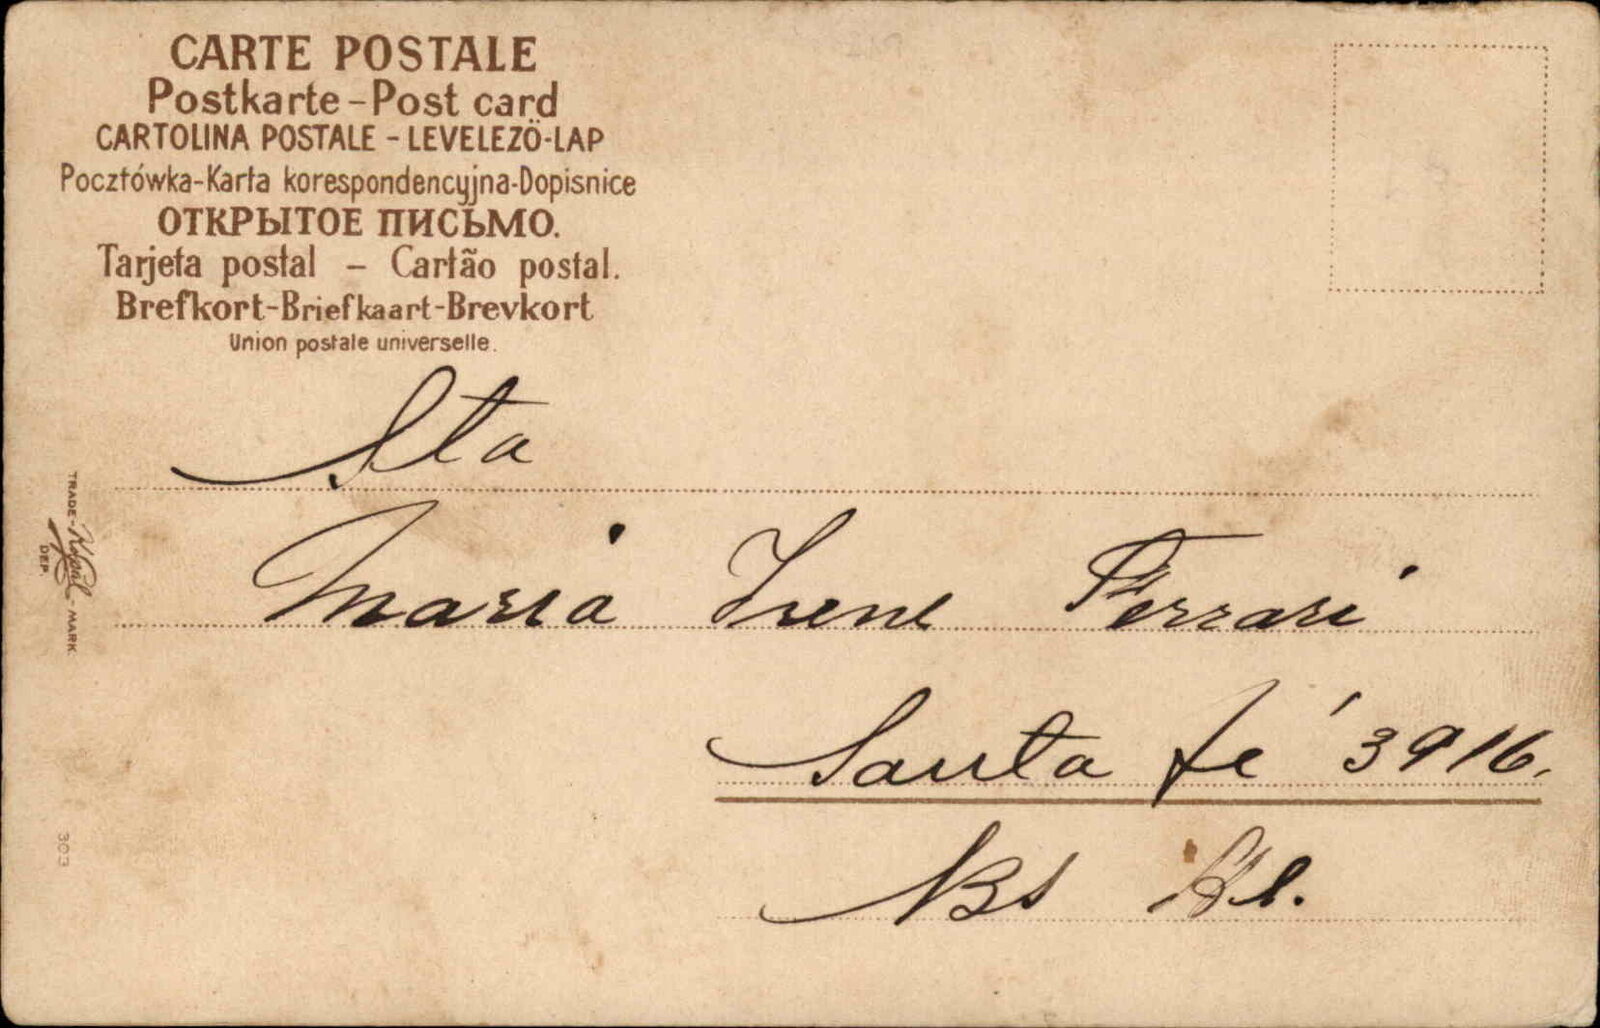 CARTE POSTALE
Postkarte - Post card
CARTOLINA POSTALE - LEVELEZÖ-LAP
Pocztówka-Karta korespondencyjna-Dopisnice
ОТКРЫТОЕ ПИСЬМО.
Tarjeta postal - Cartão postal.
Brefkort-Briefkaart-Brevkort
Union postale universelle.
Sta
Maria Irene Ferrari
Santa fé 3916.
Bs As.
TRADE - MARK
DEP.
303